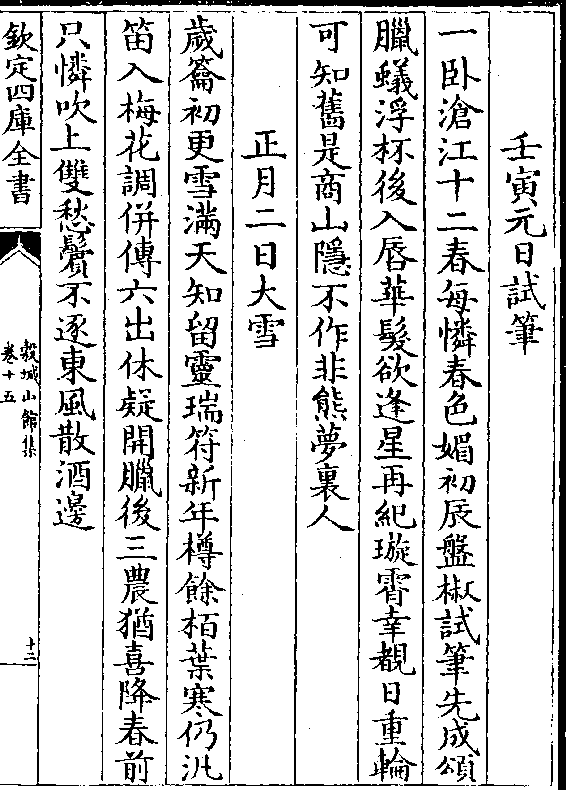 壬寅元日試筆
一卧滄江十二春每憐春色媚初辰盤椒試筆先成頌
臘蟻浮杯後入唇華髮欲逢星再紀璇霄幸覩日重輪
可知舊是商山隱不作非熊夢裏人
正月二日大雪
歲籥初更雪滿天知留靈瑞符新年樽餘栢葉寒仍沍
笛入梅花調併傳六出休疑開臘後三農猶喜降春前
只憐吹上雙愁鬢不逐東風散酒邊
欽定四庫全書
穀城山館集
卷十五
十二